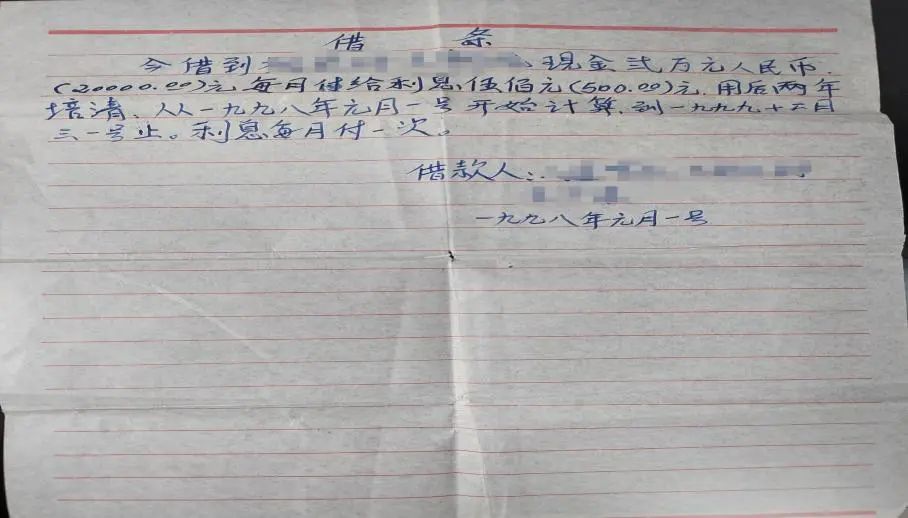 借 条
今借到 现金弍万元人民币.
(20000.00)元每月付给利息伍佰元(500.00)元.用后两年
培清、从一九九八年元月一号开始计算.到一九九九十二月
三一号止。利息每月付一次。
借款人:
一九九八年元月一号